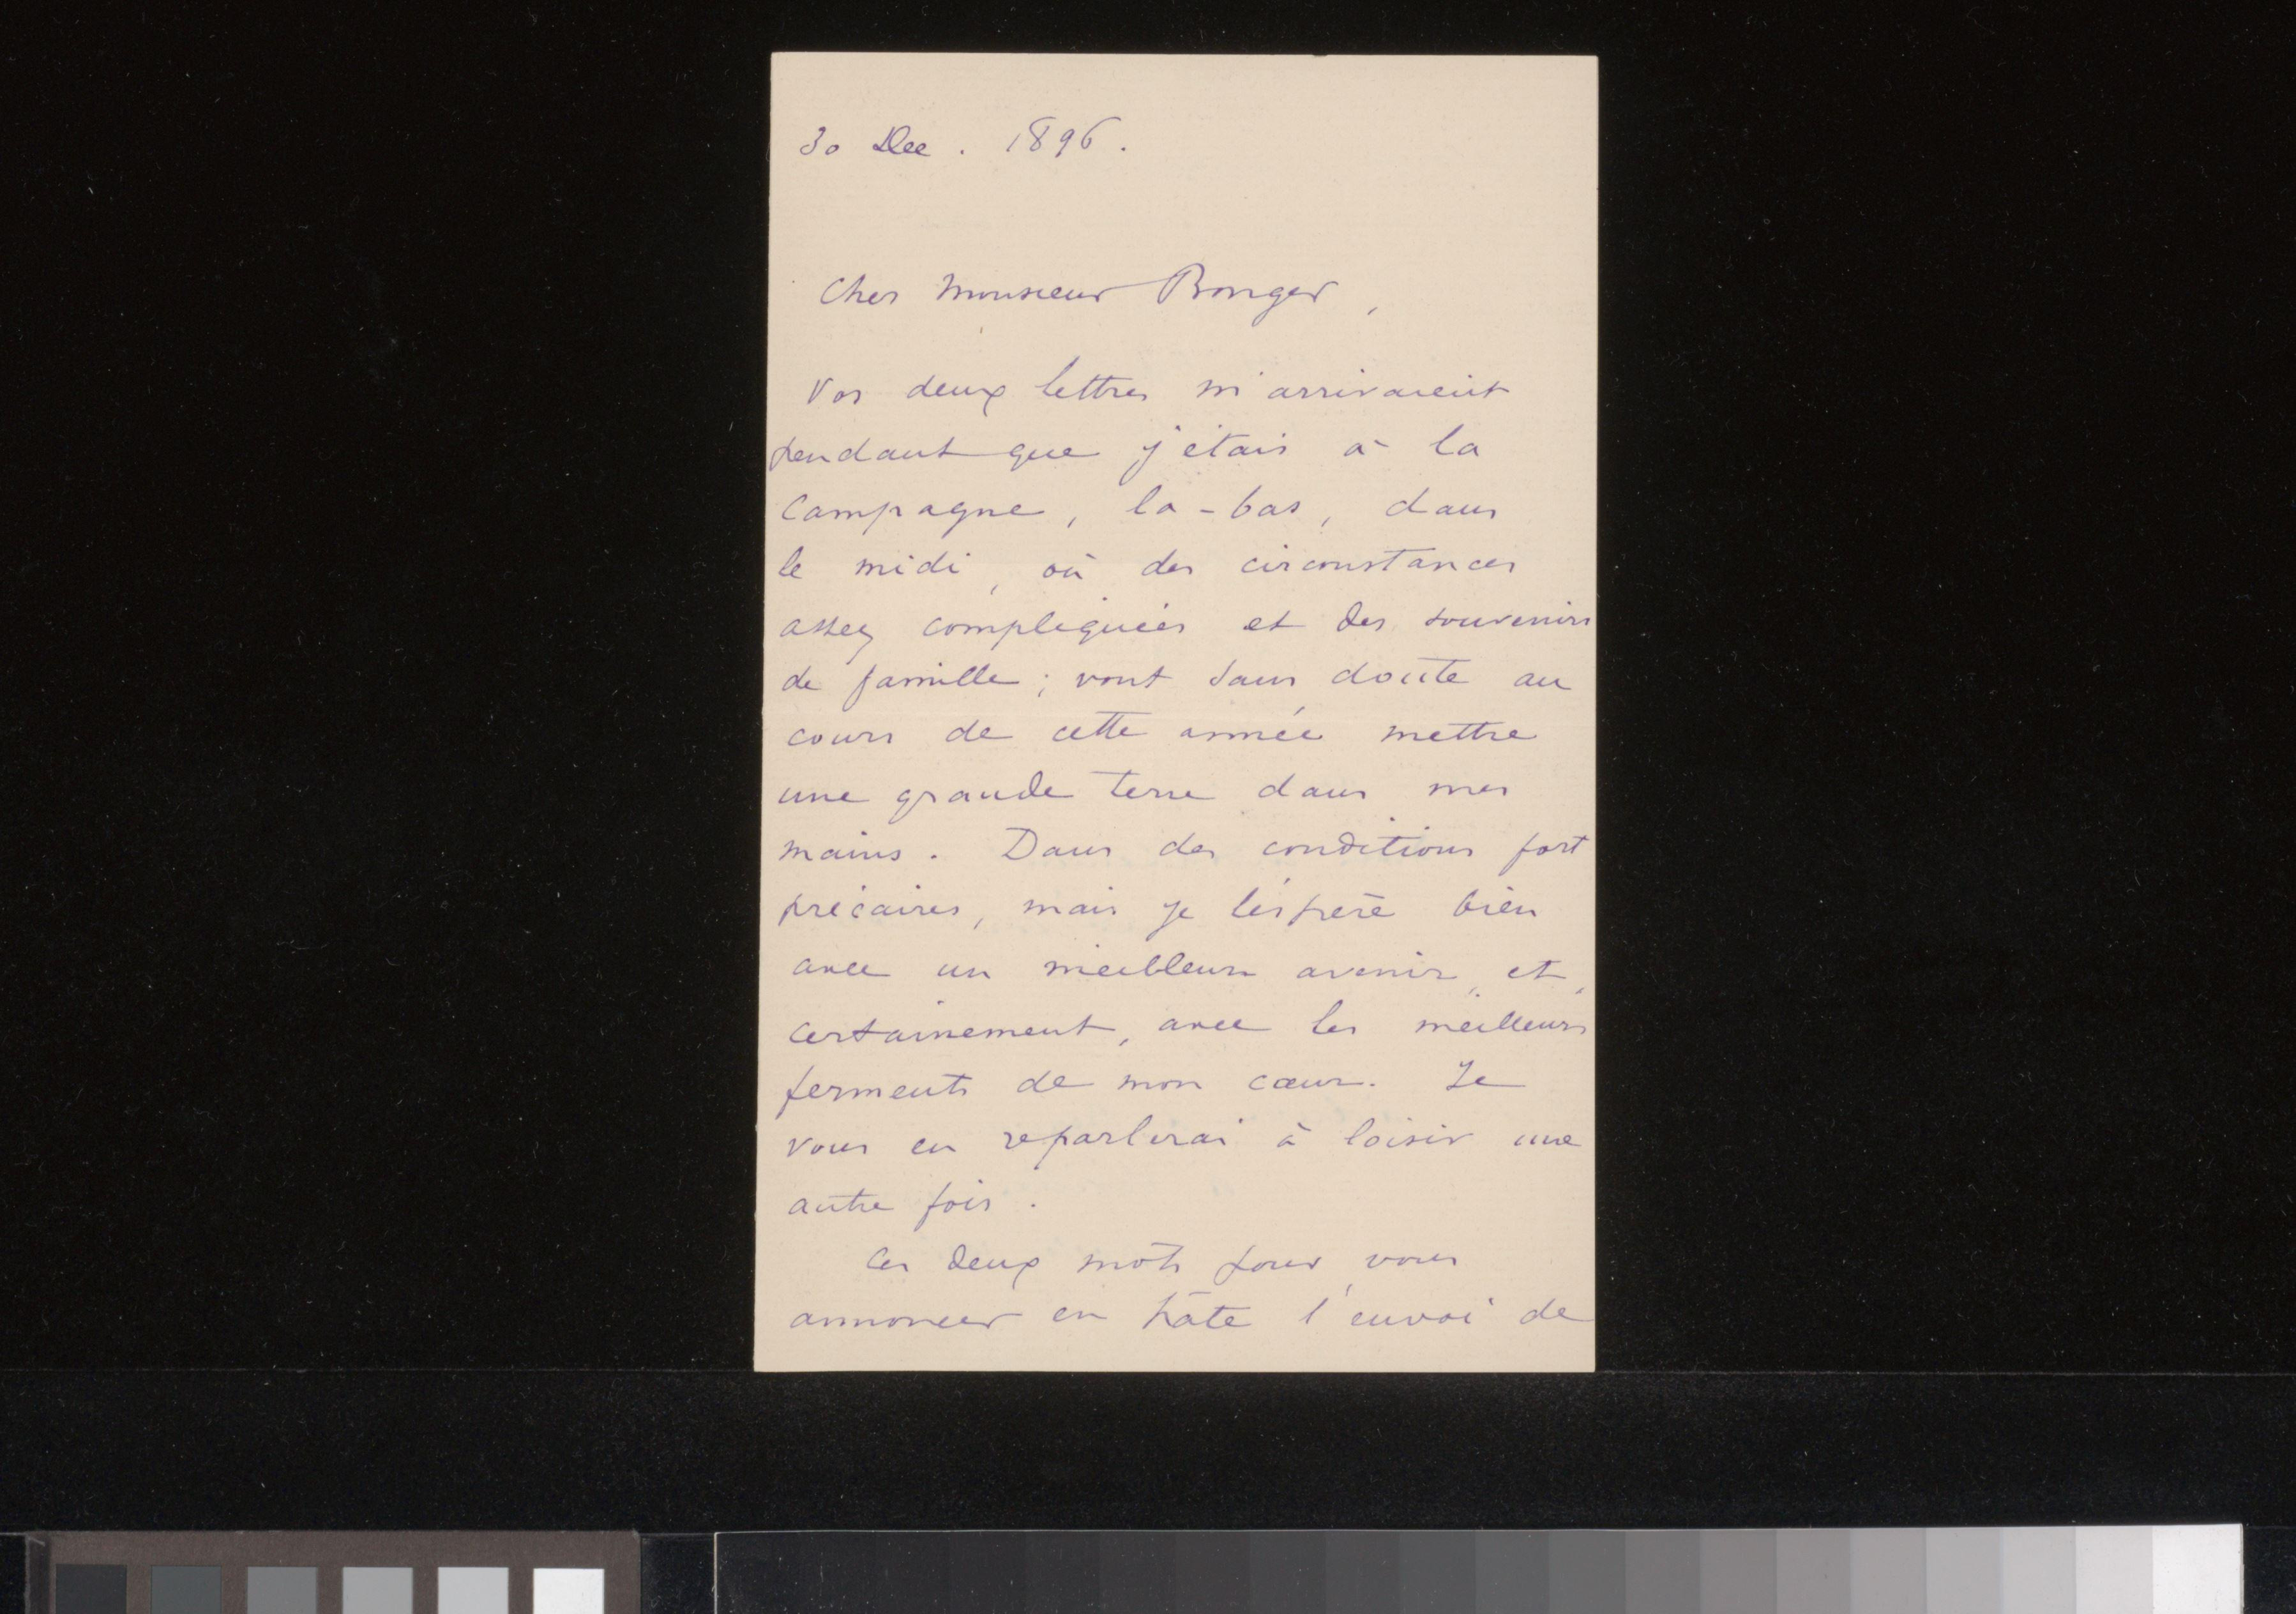 30 Dec. 1896.
Cher Monsieur Bonger,
Vos deux lettres m'arrivaient
pendant que j'étais à la
campagne, la-bas, dans
le midi, où des circonstances
assez compliquées et des souvenirs
de famille; vont sans doute au
cours de cette année mettre
une grande terre dans mes
mains. Dans des conditions fort
précaires, mais je l'éspère bien
avec un meilleur avenir, et,
certainement, avec les meilleurs
ferments de mon cœur. Je
vous en reparlerai à loisir une
autre fois.
Ces deux mots pour vous
annoncer en hâte l'envoi de